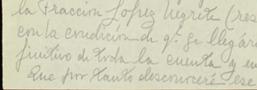 la Fracción Lopez Negrete (res
con la condición de q. se llegára
finitivo de toda la cuenta y en
Que por tanto desconoceré ese